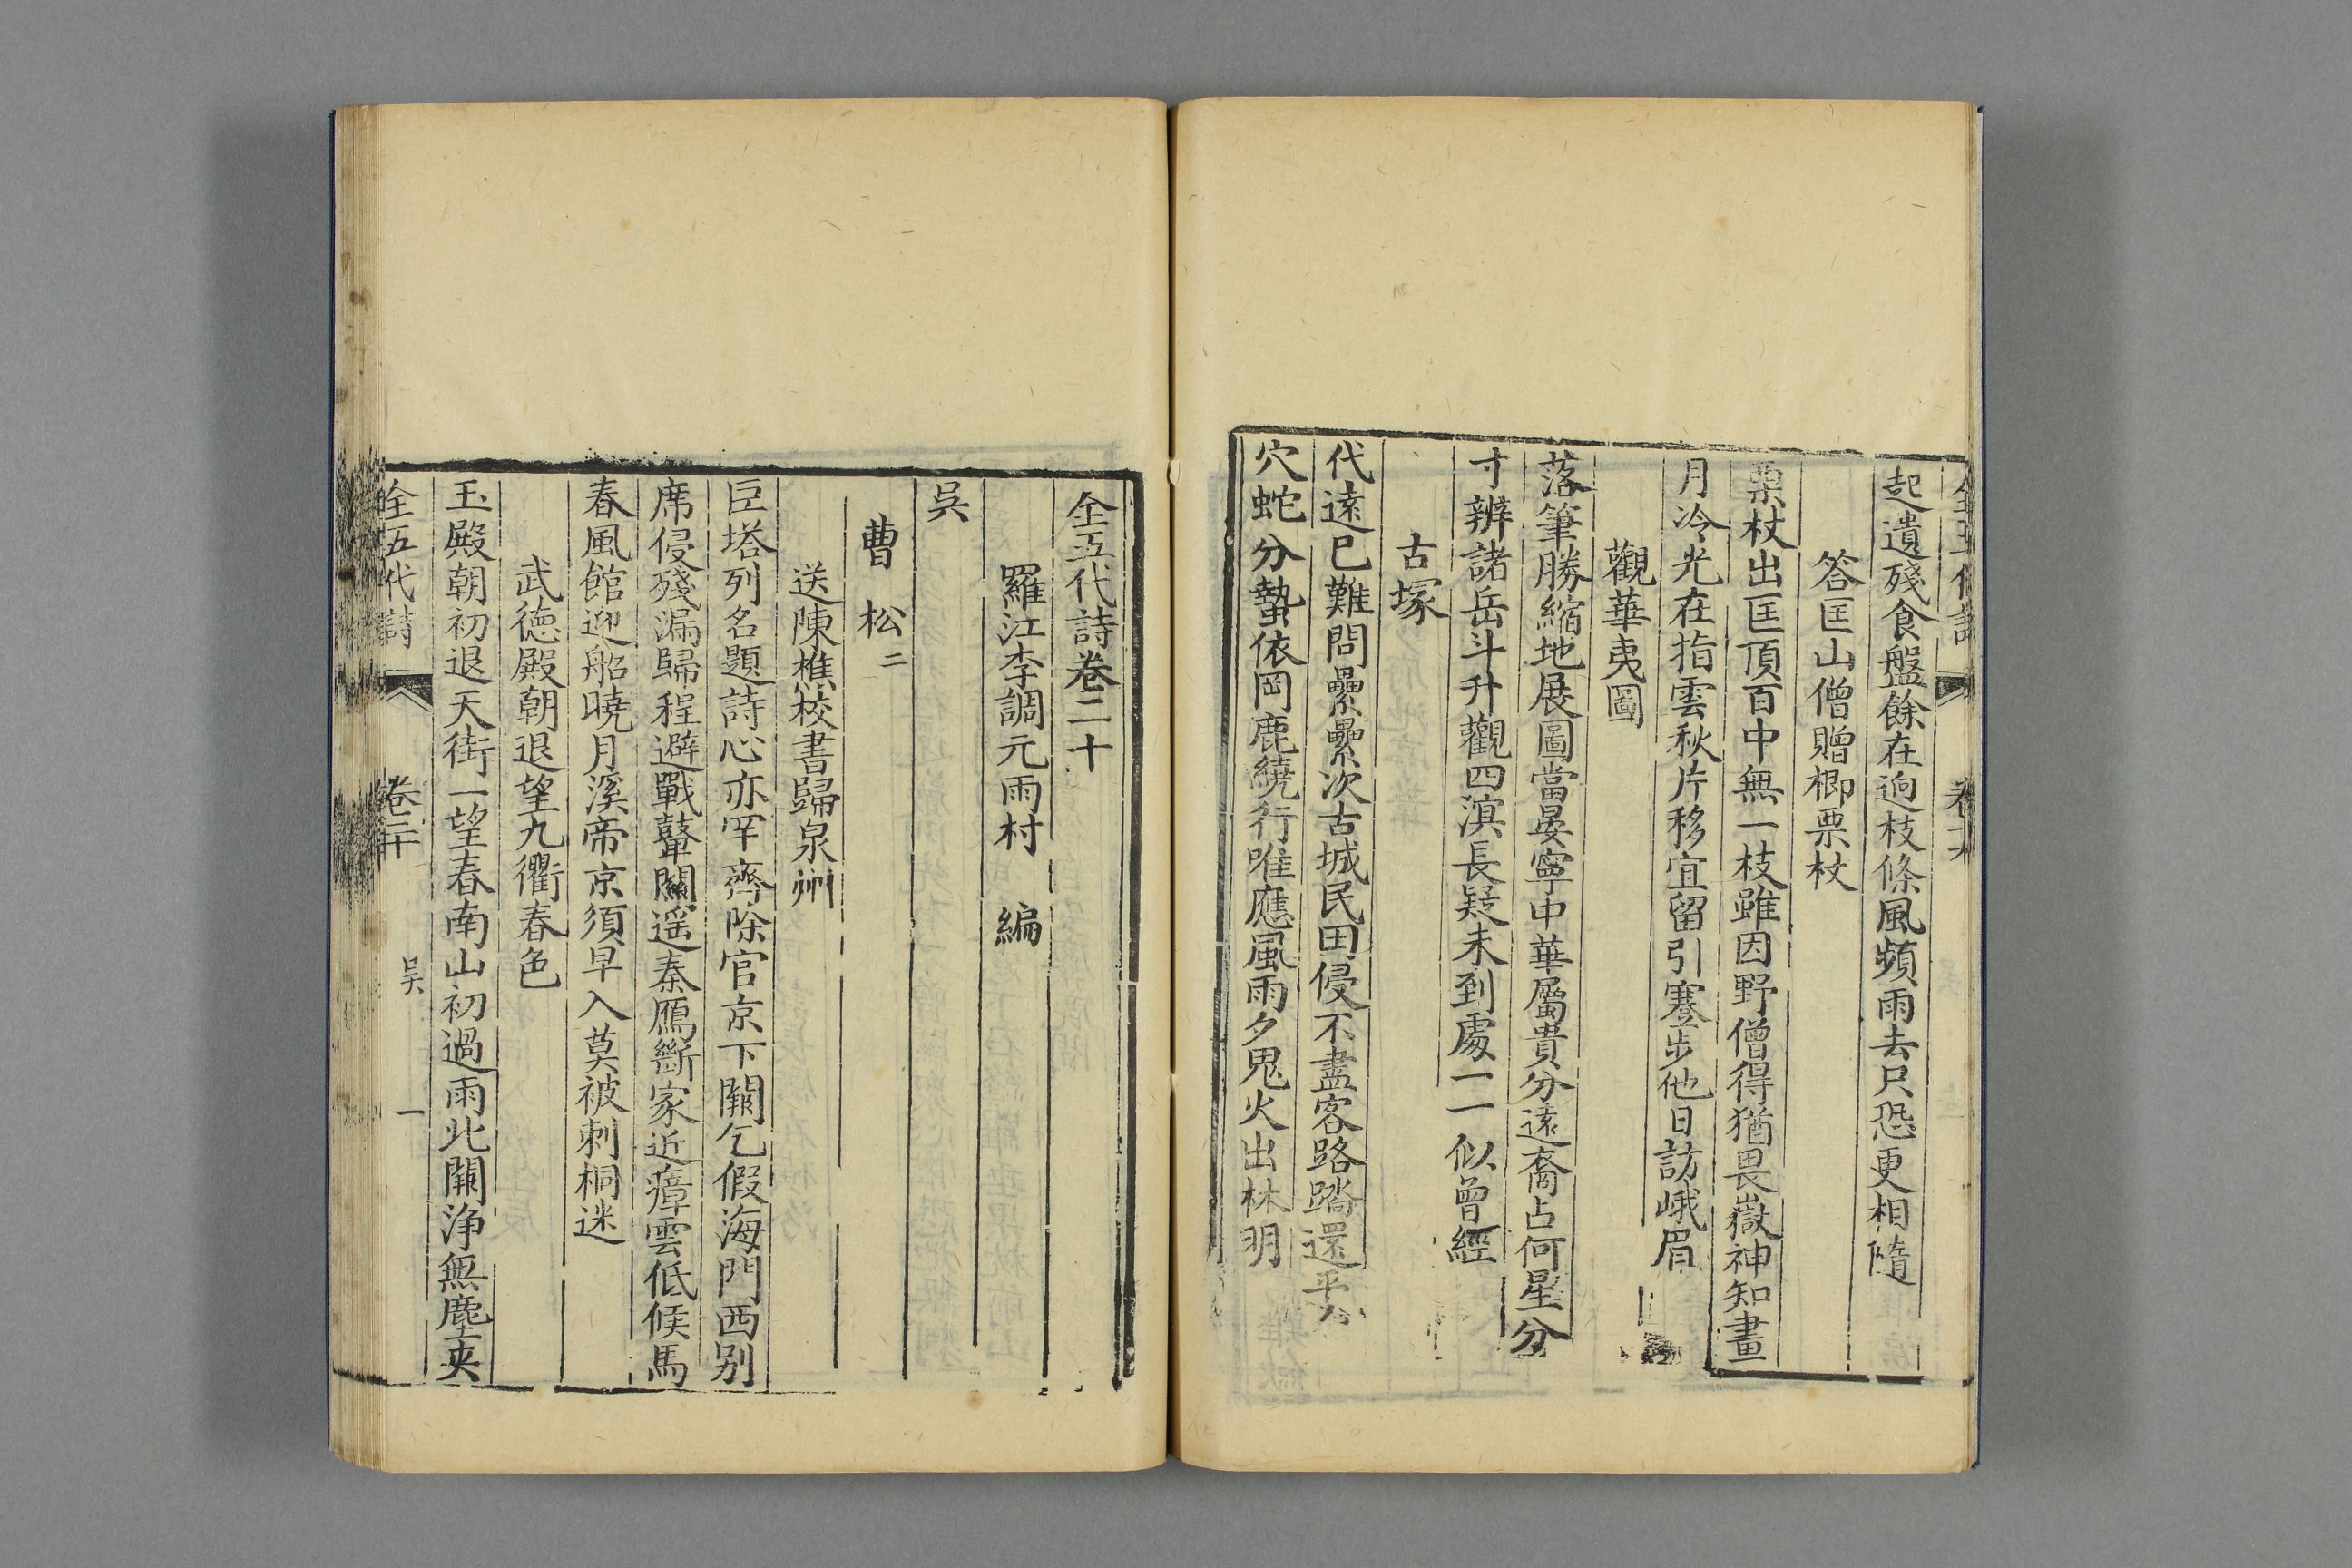 起遺殘食盤餘在逈枝條風頻雨去只恐更相隨
答匡山僧贈楖栗杖
栗杖出匡頂百中無一枝雖因野僧得猶畏嶽神知畫
月冷光在指雲秋片移宜留引蹇步他日訪峨眉
觀華夷圖
落筆勝縮地展圖當晏寧中華屬貴分遠裔占何星分
寸辨諸岳斗升觀四溟長疑未到處一一似曾經
古塚
代遠已難問纍纍次古城民田侵不盡客路踏還平
穴蛇分蟄依岡鹿繞行唯應風雨夕鬼火出林明
全五代詩卷二十
羅江李調元雨村 編
吳
曹 松 二
送陳樵校書歸泉州
巨塔列名題詩心亦罕齊除官京下闕乞假海門西别
席侵殘漏歸程避戰鼙關遥秦鴈斷家近瘴雲低候馬
春風館迎船曉月溪帝京須早入莫被刺桐迷
武德殿朝退望九衢春色
玉殿朝初退天街一望春南山初過雨北闕浄無塵夾
全五代詩 卷二十 吳 一